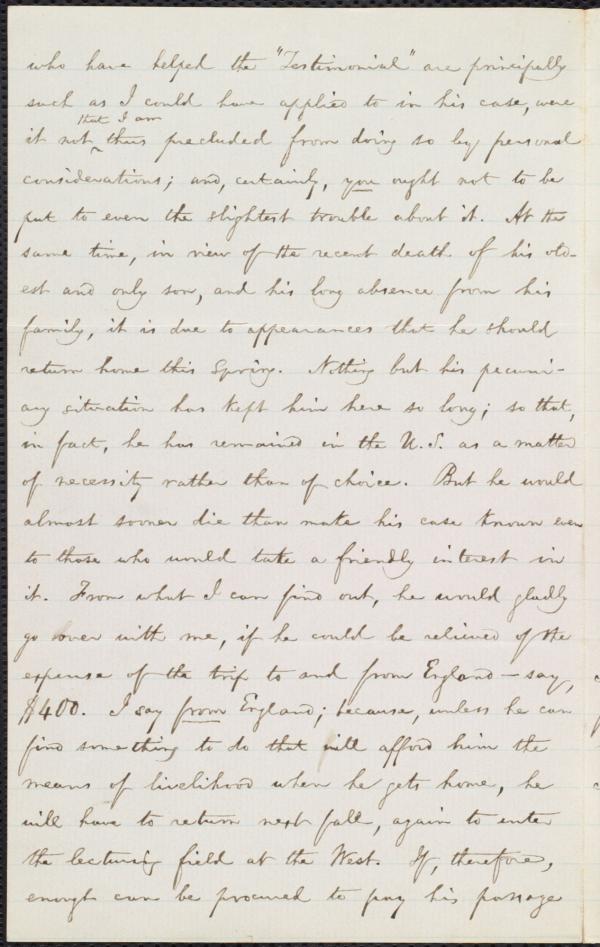 who have helped the "Testimonial" are principally
such as I could have applied to in his case, were
that I am
it not ‸ thus precluded from doing so by personal
considerations; and, certainly, you ought not to be
put to even the slightest trouble about it. At the
same time, in view of the recent death of his old-
est and only son, and his long absence from his
family, it is due to appearances that he should
return home this Spring. Nothing but his pecuni-
ary situation has kept him here so long; so that,
in fact, he has remained in the U.S. as a matter
of necessity rather than of choice. But he would
almost sooner die than make his case known even
to those who would take a friendly interest in
it. From what I can find out, he would gladly
go over with me, if he could be relieved of the
expense of the trip to and from England — say,
$400. I say from England; because, unless he can
find something to do that will afford him the
means of livelihood when he gets home, he
will have to return next fall, again to enter
the lecturing field at the West. If, therefore,
enough can be procured to pay his passage